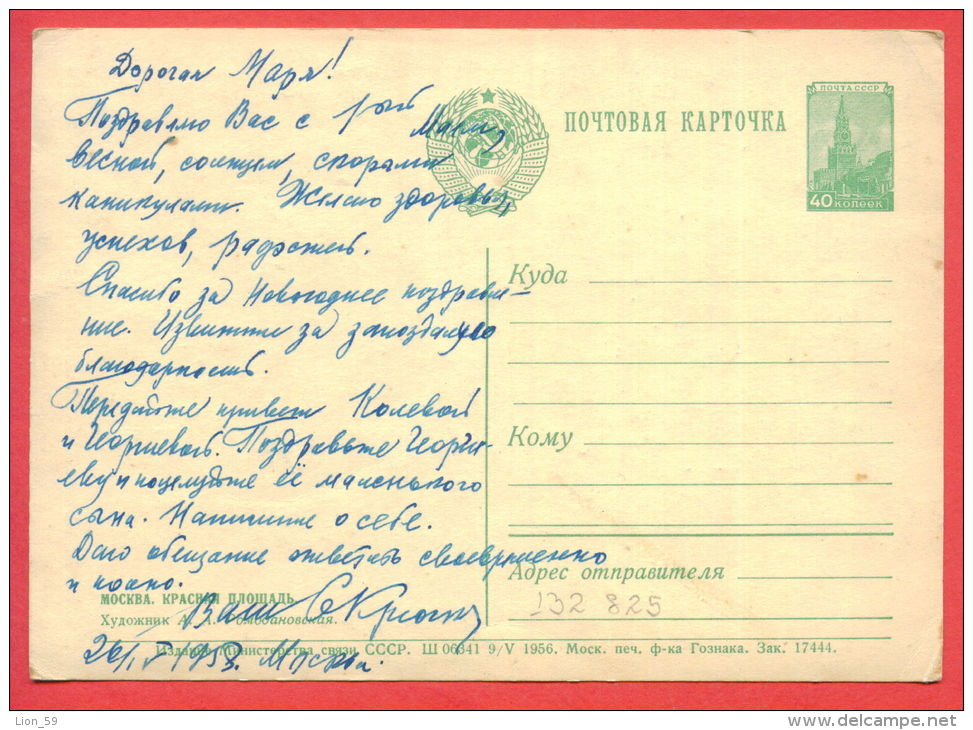 Дорогая Мария!
Поздравляю Вас с 1ой Мая,
весной, солнцем, скорыми
каникулами. Желаю здоровья,
успехов, радостей.
Спасибо за Новогоднее поздравле-
ние. Извините за запоздалую
благодарность.
Передайте привет Колевой
и Георгиевой. Поздравьте Георги-
еву и поцелуйте её маленького
сына. Напишите о себе.
Даю обещание отвечать своевременно
и полно.
Ваш
Москва.
ПОЧТОВАЯ КАРТОЧКА
ПОЧТА СССР
40 КОПЕЕК
Куда
Кому
Адрес отправителя
132 825
МОСКВА. КРАСНАЯ ПЛОЩАДЬ
Художник А.
Издание Министерства связи СССР. Ш 06341 9/V 1956. Моск. печ. ф-ка Гознака. Зак. 17444.
Lion_59
www.delcampe.net